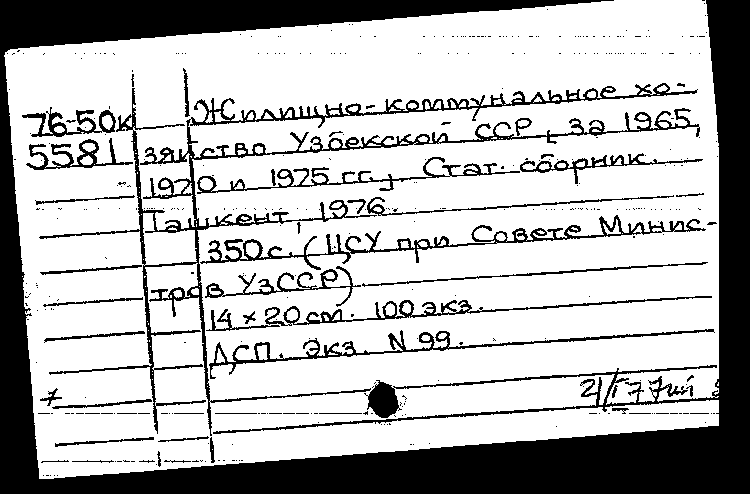 76-50к Жилищно-коммунальное хо-
5581 зяйство Узбекской ССР [за 1965,
1970 и 1975 гг.]. Стат. сборник.
Ташкент, 1976.
350с. (ЦСУ при Совете Минис-
тров УзССР)
14 × 20 см. 100 экз.
ДСП. Экз. N 99.